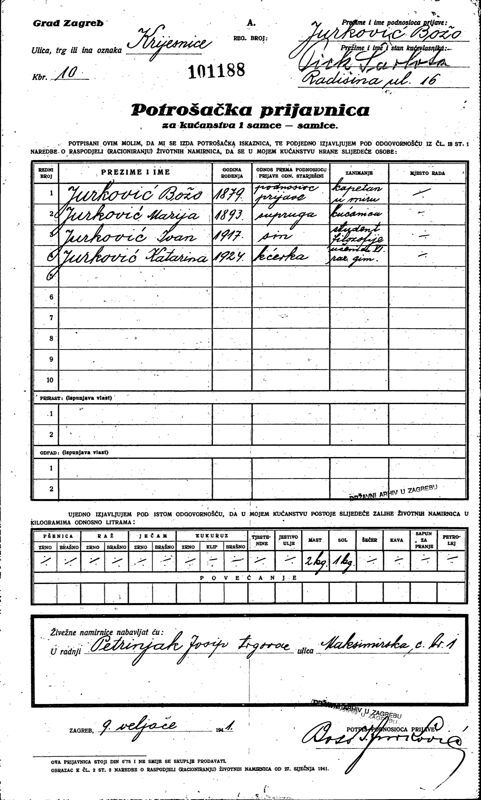 Grad Zagreb
A.
Prezime i ime podnosioca prijave:
Ulica, trg ili ina oznaka Krijesnice
REG. BROJ:
Jurković Božo
Prezime i ime i stan kućevlasnika:
Kbr. 10
101188
Radišina ul. 16
Potrošačka prijavnica
za kućanstva i samce — samice.
POTPISANI OVIM MOLIM, DA MI SE IZDA POTROŠAČKA ISKAZNICA, TE PODJEDNO IZJAVLJUJEM POD ODGOVORNOŠĆU IZ ČL. 18 ST. 1
NAREDBE O RASPODJELI (RACIONIRANJU) ŽIVOTNIH NAMIRNICA, DA SE U MOJEM KUĆANSTVU HRANE SLIJEDEĆE OSOBE:
REDNI BROJ PREZIME I IME GODINA ROĐENJA ODNOS PREMA PODNOSIOCU PRIJAVE ODN. STARJEŠINI ZANIMANJE MJESTO RADA
1 Jurković Božo 1879. podnosioc prijave kapetan u miru —
2 Jurković Marija 1893. supruga kućanica —
3 Jurković Ivan 1917. sin student filozofije —
Jurković Katarina 1924. kćerka gim. —
6
7
8
9
10
PRIRAST: (ispunjava vlast)
1
2
OTPAD: (ispunjava vlast)
1
2
DRŽAVNI ARHIV U ZAGREBU
UJEDNO IZJAVLJUJEM POD ISTOM ODGOVORNOŠĆU, DA U MOJEM KUĆANSTVU POSTOJE SLIJEDEĆE ZALIHE ŽIVOTNIH NAMIRNICA U
KILOGRAMIMA ODNOSNO LITRAMA:
PŠENICA RAŽ JEČAM KUKURUZ TJESTENINE JESTIVO ULJE MAST SOL ŠEĆER KAVA SAPUN ZA PRANJE PETROLEJ
ZRNO BRAŠNO ZRNO BRAŠNO ZRNO BRAŠNO ZRNO KLIP BRAŠNO
— — — — — — — — — — — 2 kg. 1 kg. — — — —
POVEĆANJE
Živežne namirnice nabavljat ću:
U radnji Petrinjak Josip trgovac ulica Maksimirska c. br. 1
DRŽAVNI ARHIV U ZAGREBU
ZAGREB, 9. veljače 1941.
POTPIS PODNOSIOCA PRIJAVE:
OVA PRIJAVNICA STOJI DIN 0'75 I NE SMIJE SE SKUPLJE PRODAVATI.
OBRAZAC K ČL. 2 ST. 2 NAREDBE O RASPODJELI (RACIONIRANJU) ŽIVOTNIH NAMIRNICA OD 27. SIJEČNJA 1941.